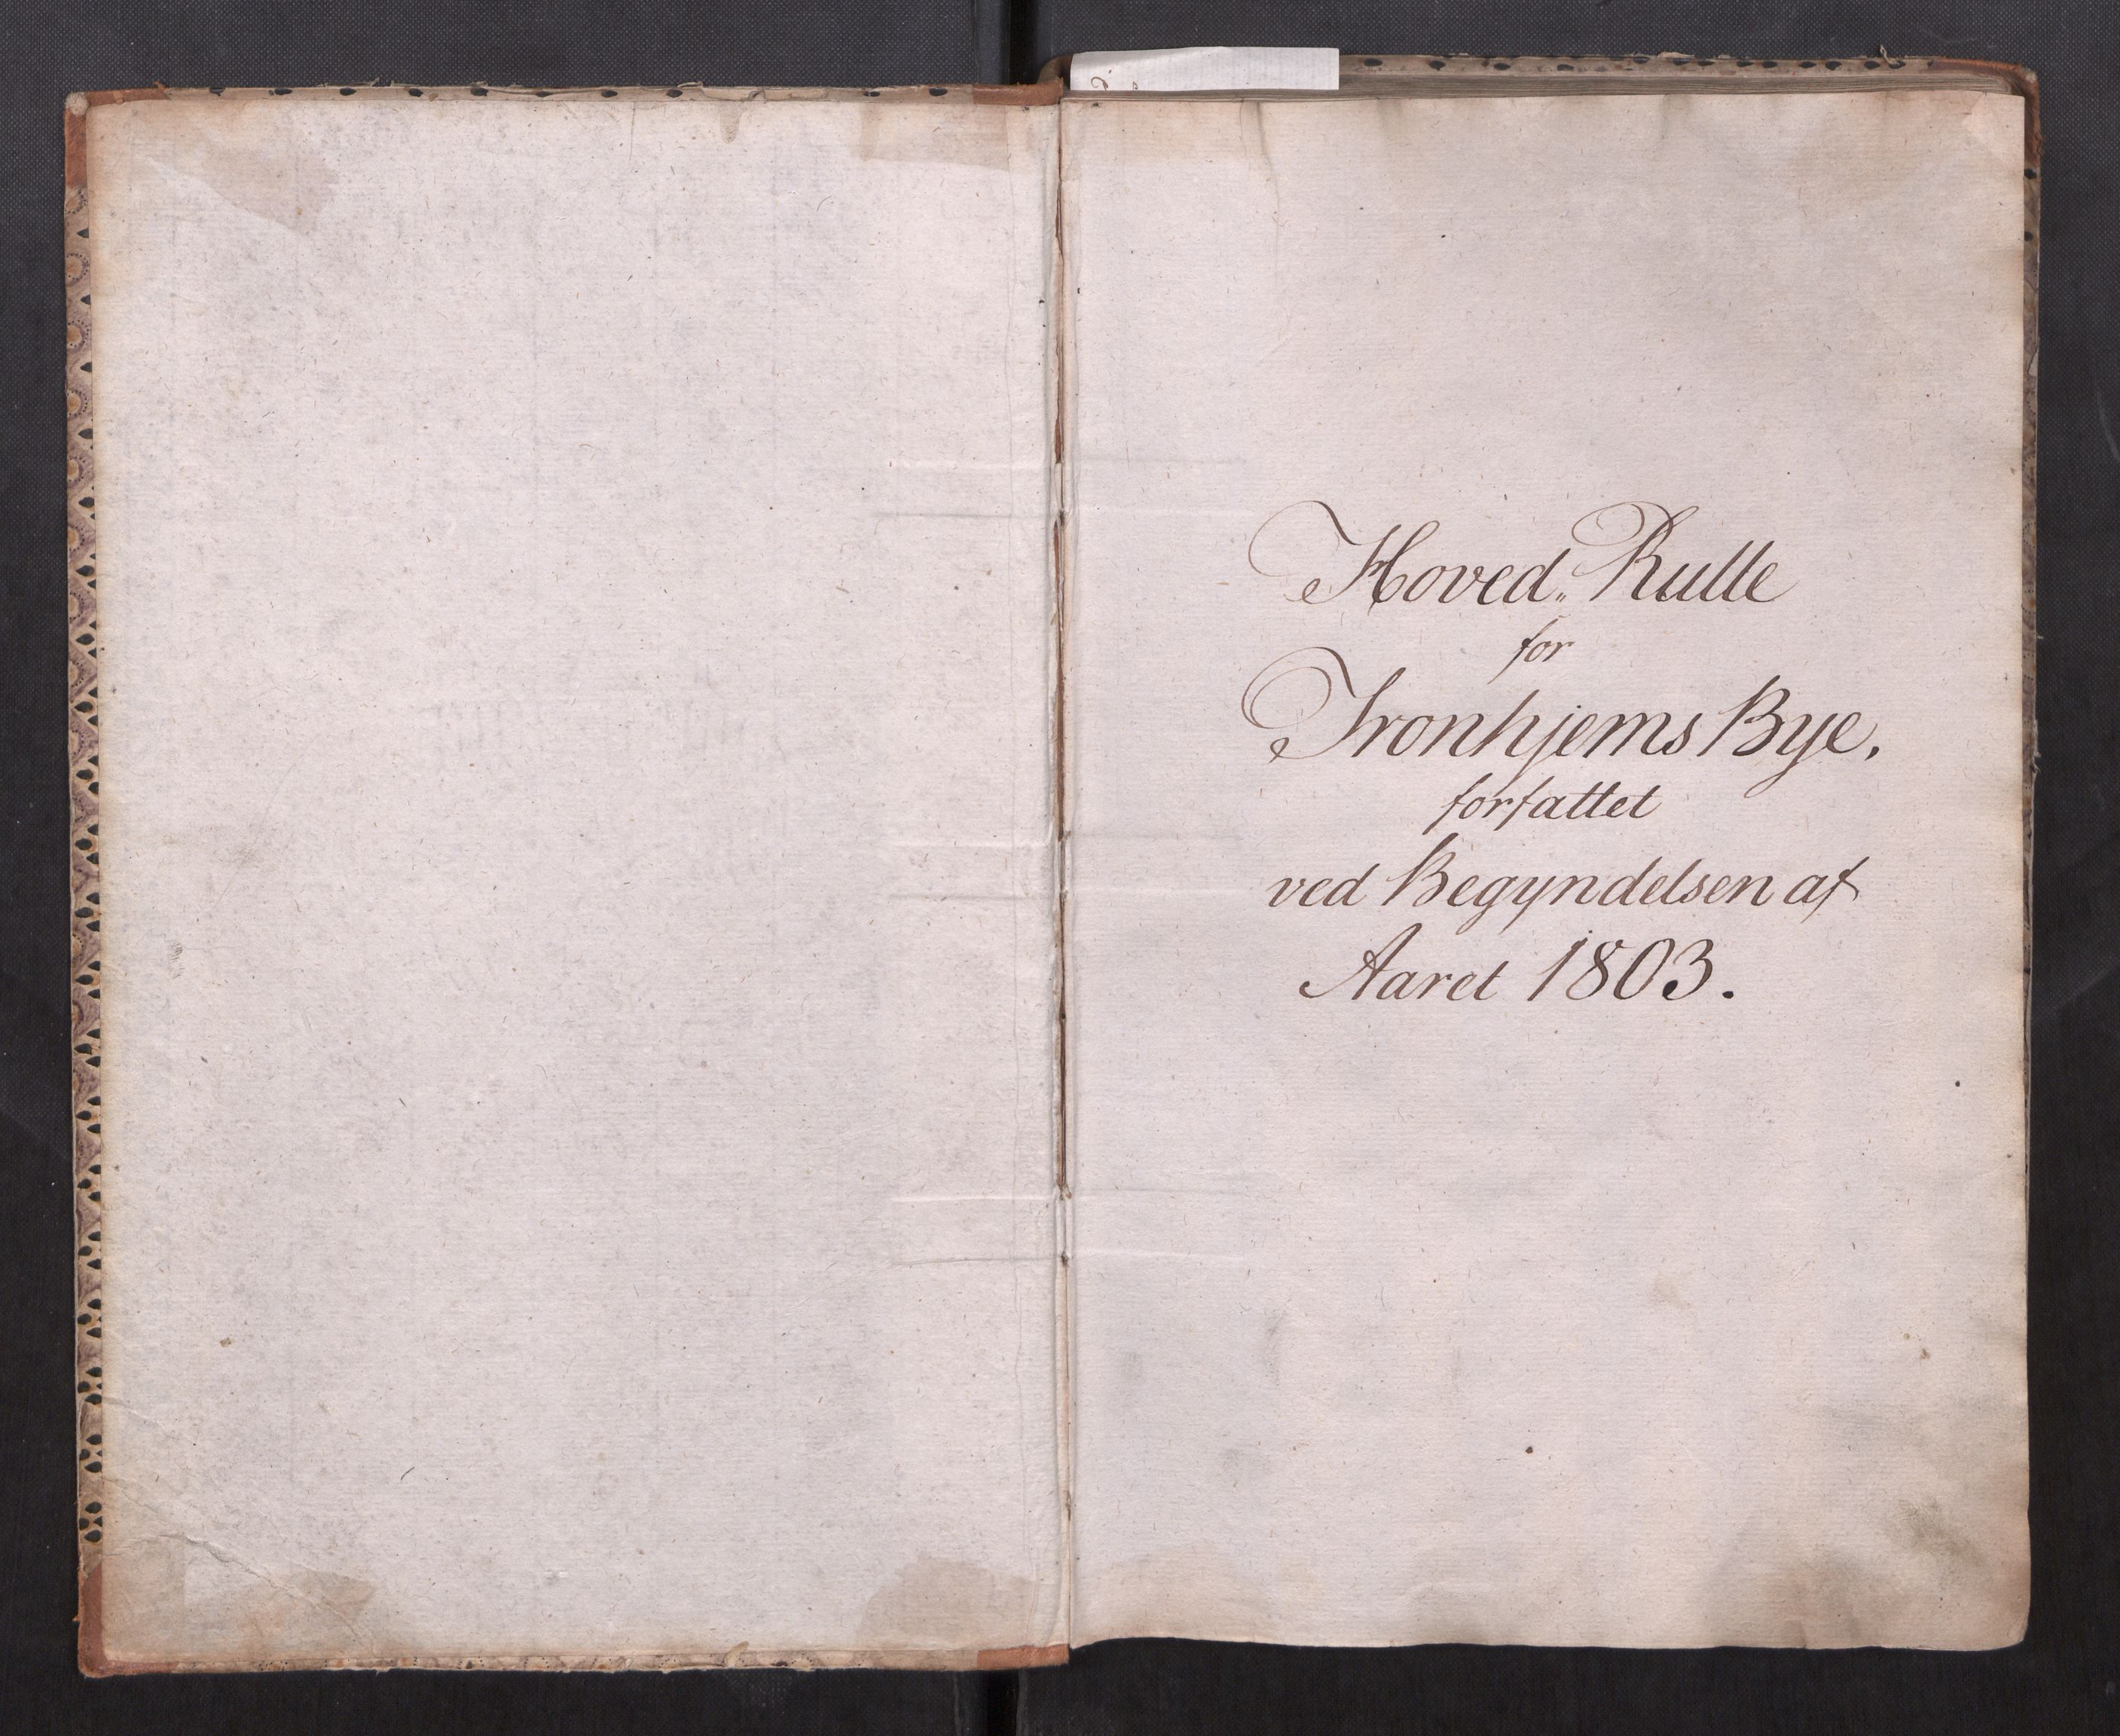 Hoved„ Rulle
for
Tronhjems Bye.
forfattet
ved Begyndelsen af
Aaret 1803.